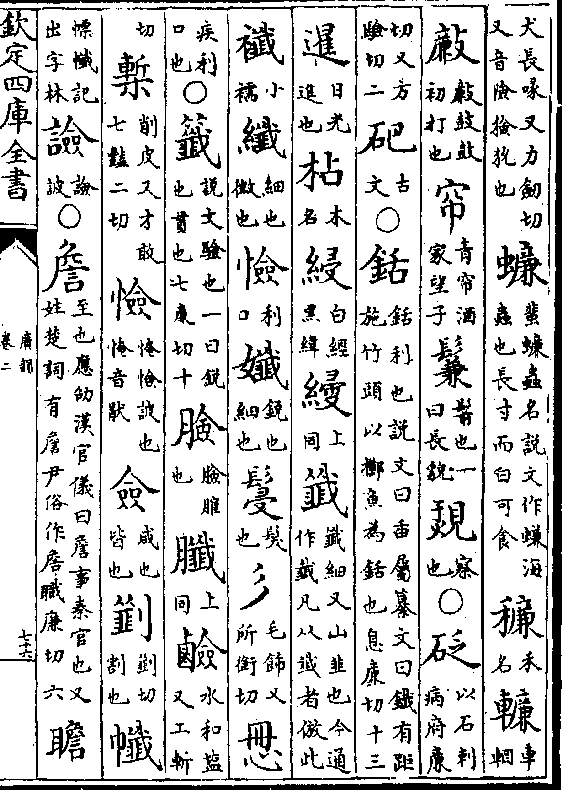 犬長喙又力劒切又音險獫狁也 蠊 蜚蠊蟲名說文作蠊海蟲也長寸而白可食 䅿 禾名 𨏩 車輞
㪘 㪘㪉㪉初打也 帘 青帘酒家望子 鬑 鬋也一曰長皃 覝 察也 ○ 砭 以石刺病府廉
切又方驗切二 𥐟 古文 ○ 銛 銛利也說文曰臿屬纂文曰鐵有距施竹頭以擲魚為銛也息廉切十三
暹 日光進也 枮 木名 綅 白經黑緯 縵 上同 韱 韱細又山韭也今通作韱凡以韱者倣此
襳 小襦 纖 細也微也 憸 利口 孅 銳也細也 鬘 髮也 彡 毛飾又所銜切 思 疾利口也 ○ 籤 說文驗也一曰銳也貫也七廉切十 臉 臉𦠄也 臢 上同 䶢 水和鹽又工斬
切 槧 削皮又才敢七豔二切 憸 憸憸詖也憸音猒 僉 咸也皆也 劗 劗切割也 幟
幖幟記出字林 譣 譣詖 ○ 詹 至也應劭漢官儀曰詹事秦官也又姓楚詞有詹尹俗作詹職廉切六 瞻
欽定四庫全書
廣韻
卷二
七十六